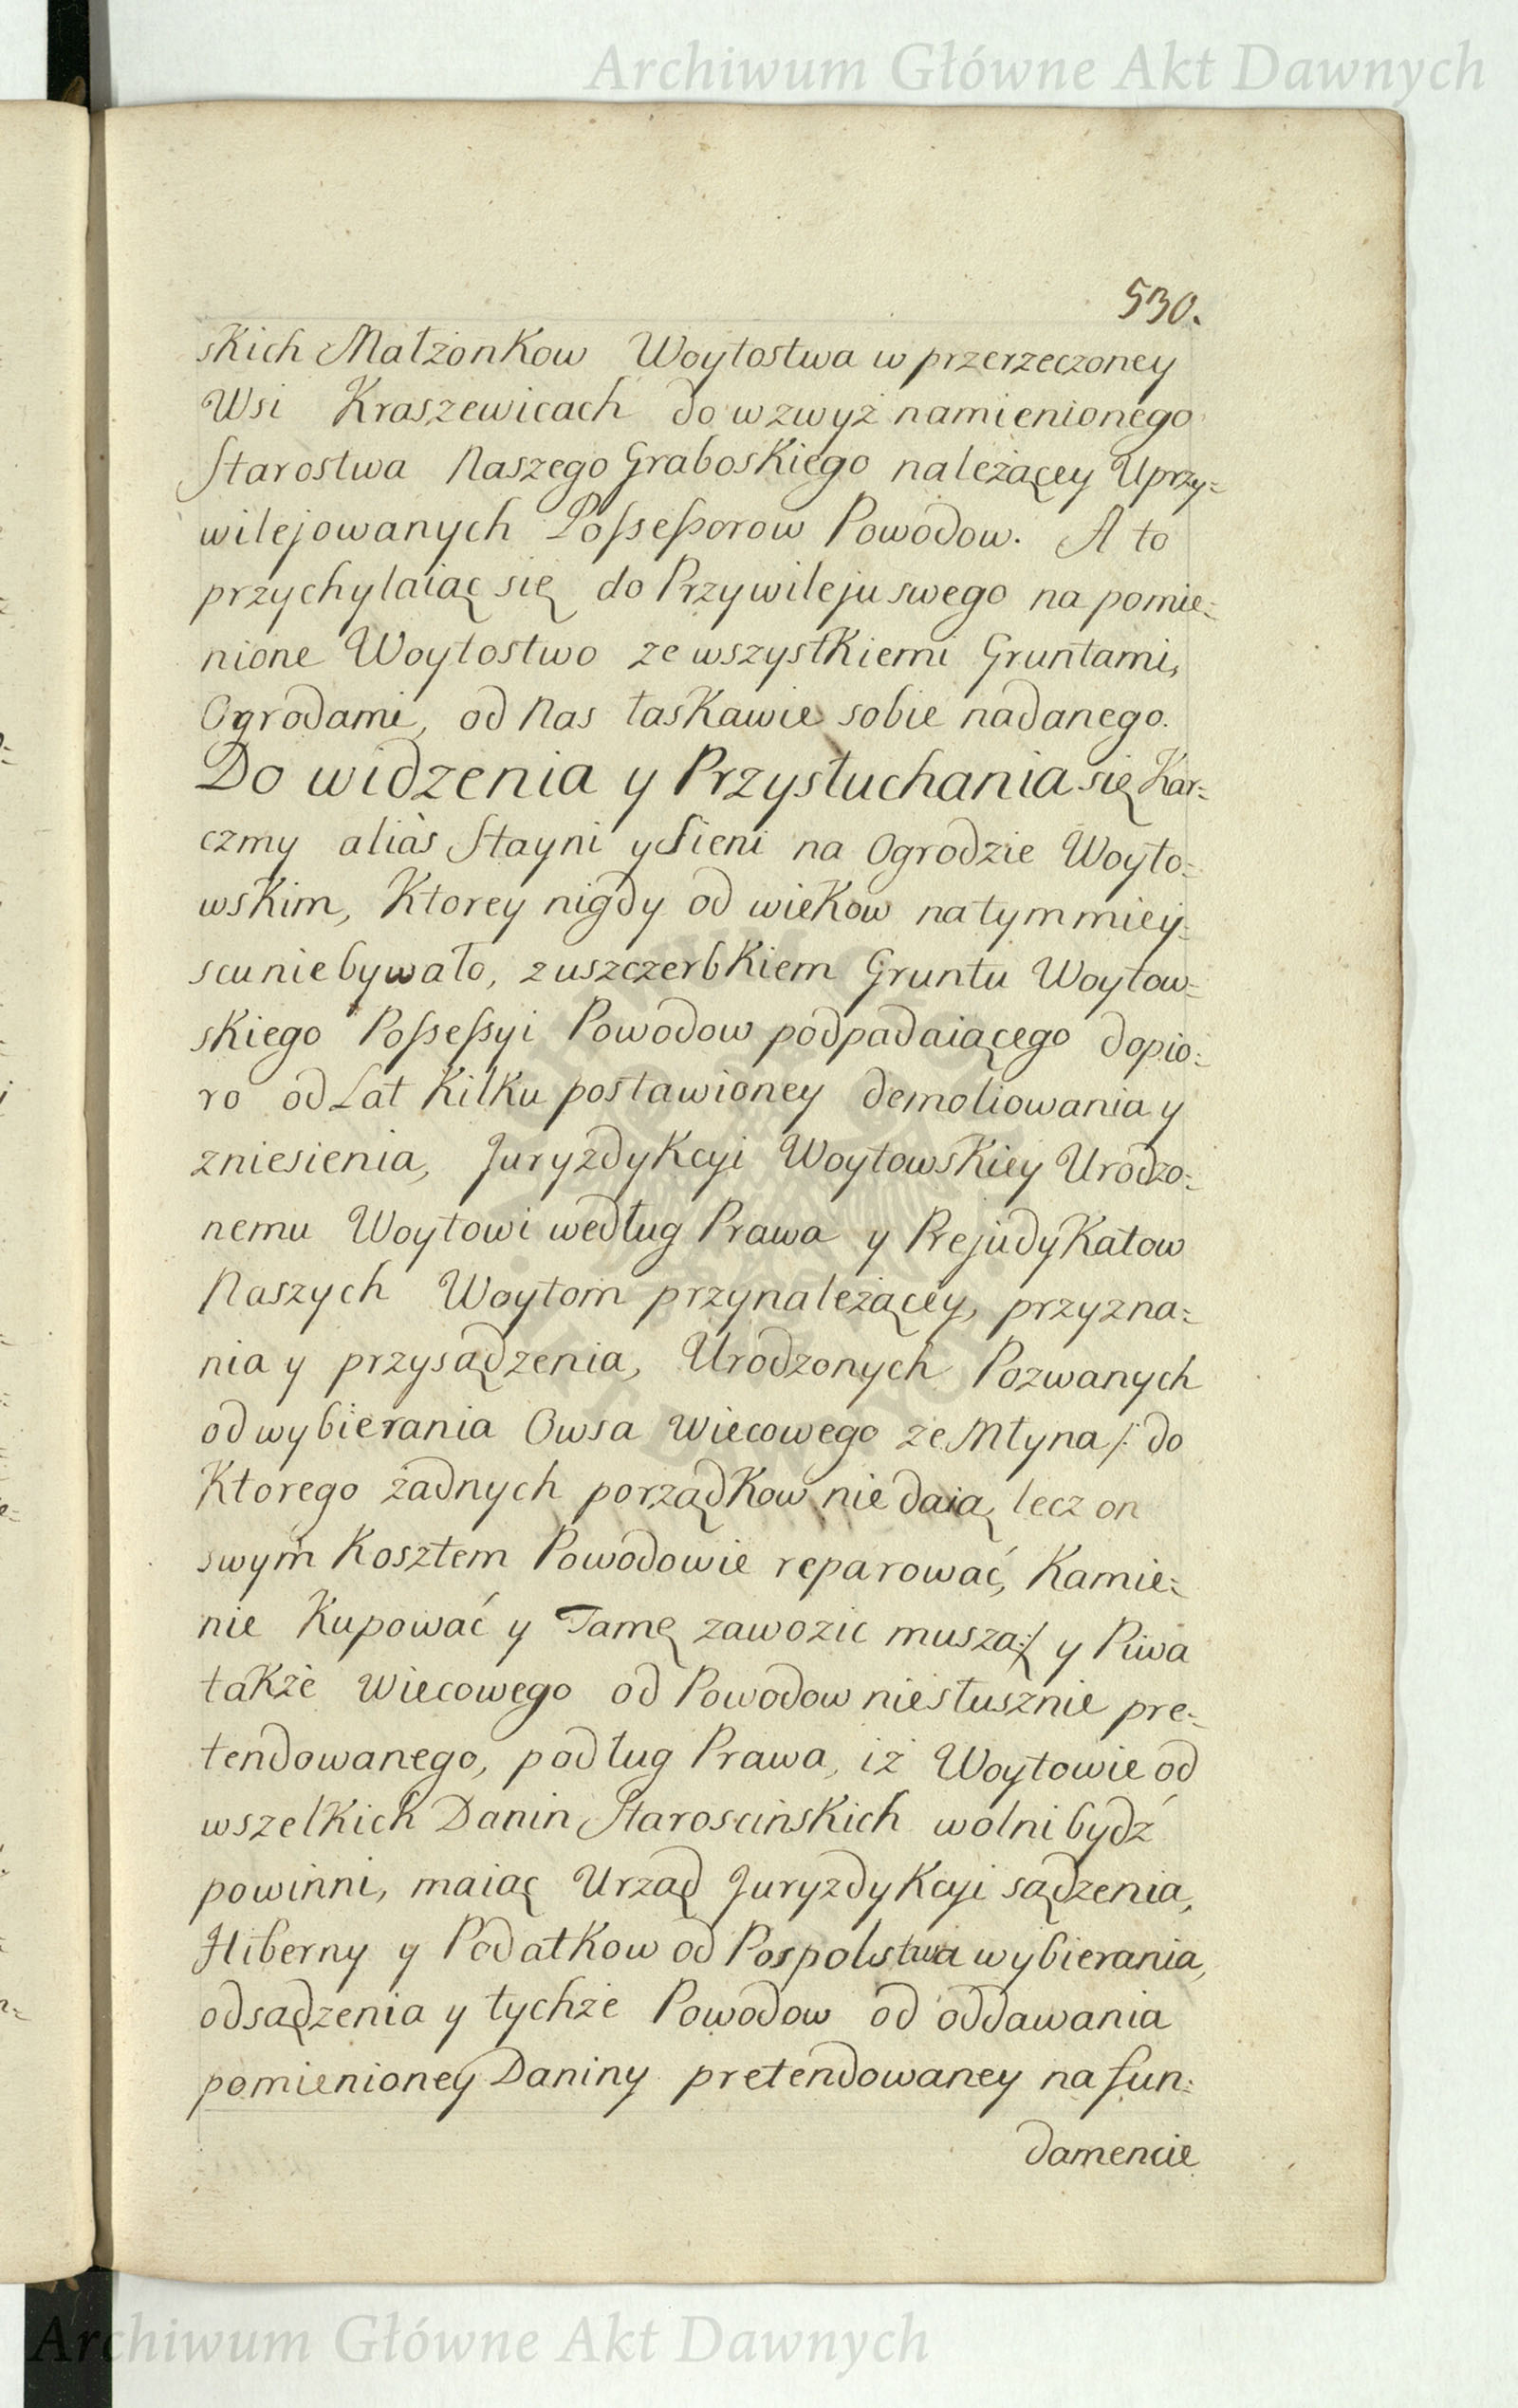 Archiwum Główne Akt Dawnych
530.
skich Małżonkow Woytostwa w przerzeczoney
Wsi Kraszewicach do wzwyż namienionego
Starostwa Naszego Graboskiego należącey Uprzy=
wilejowanych Possessorow Powodow. A to
przychylaiąc się do Przywileju swego na pomie=
nione Woytostwo ze wszystkiemi Gruntami,
Ogrodami, od Nas łaskawie sobie nadanego.
Do widzenia y Przysłuchania się Kar=
czmy aliàs Stayni y Sieni na Ogrodzie Woyto=
wskim, Ktorey nigdy od wiekow na tym miey=
scu nie bywało, z uszczerbkiem Gruntu Woytow=
skiego Possessyi Powodow podpadaiącego dopio=
ro od Lat Kilku postawioney demoliowania y
zniesienia, Juryzdykcyi Woytowskiey Urodzo=
nemu Woytowi według Prawa y Prejudykatow
Naszych Woytom przynależącey, przyzna=
nia y przysądzenia, Urodzonych Pozwanych
od wybierania Owsa Wiecowego ze Młyna /: do
Ktorego żadnych porządkow nie daią, lecz on
swym Kosztem Powodowie reparować, Kamie=
nie Kupować y Tamę zawozic muszą :/ y Piwa
także Wiecowego od Powodow niesłusznie pre=
tendowanego, podług Prawa, iż Woytowie od
wszelkich Danin Staroscińskich wolni bydź
powinni, maiąc Urząd Juryzdykcyi sądzenia,
Hiberny y Podatkow od Pospolstwa wybierania,
odsądzenia y tychże Powodow od oddawania
pomienioney Daniny pretendowaney na fun=
damencie
Archiwum Główne Akt Dawnych